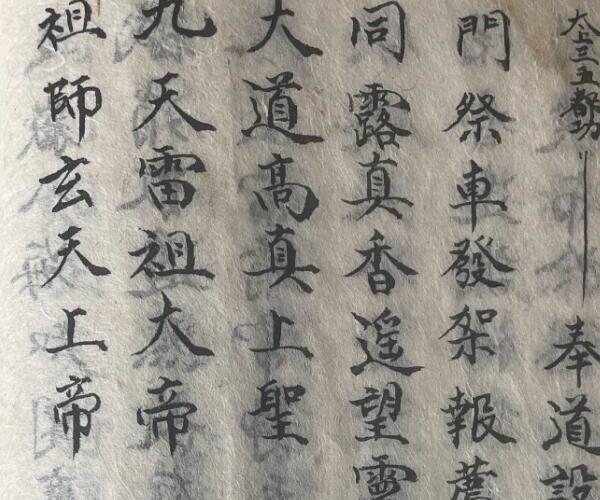 太上三五都功 奉道設
門祭車發架報薦
同露真香遥望靈
大道高真上聖
九天雷祖大帝
祖師玄天上帝